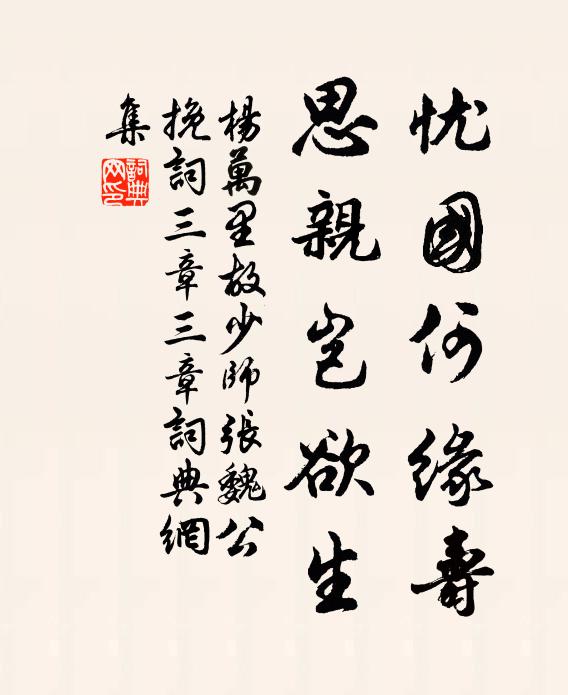 忧國何緣壽
思親豈欲生
楊萬里故少師張魏公
挽詞三章三章詞典網
集
詞典
网印